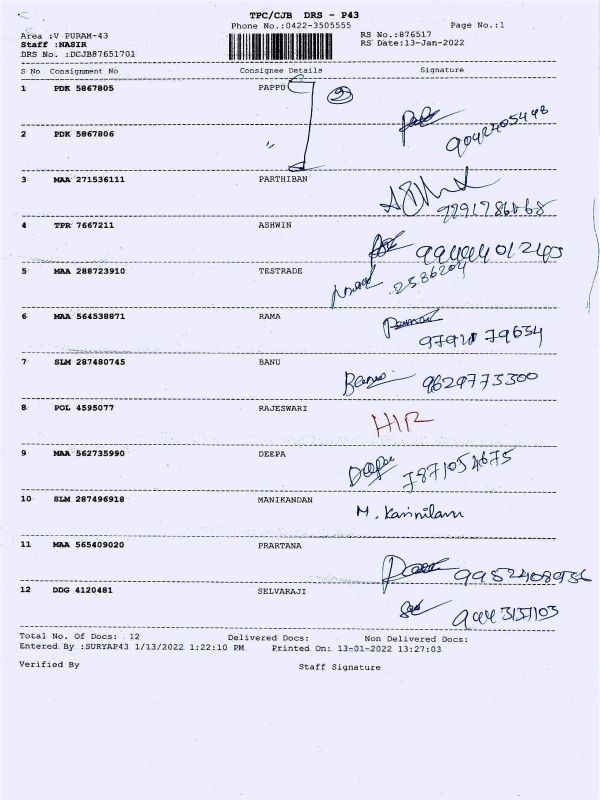 TPC/CJB DRS - P43
Phone No.:0422-3505555
Page No.:1
Area :V PURAM-43
RS No.:876517
Staff :NASIR
RS Date:13-Jan-2022
DRS No. :DCJB87651701
S No Consignment No Consignee Details Signature
1 PDK 5867805 PAPPU
2 PDK 5867806
9042405448
3 MAA 271536111 PARTHIBAN
4 TPR 7667211 ASHWIN
5 MAA 288723910 TESTRADE
2586204
6 MAA 564538871 RAMA
7 SLM 287480745 BANU
Banu 9629773300
8 POL 4595077 RAJESWARI
H/R
9 MAA 562735990 DEEPA
Deepa 7871054675
10 SLM 287496918 MANIKANDAN
11 MAA 565409020 PRARTANA
9952408956
12 DDG 4120481 SELVARAJI
Total No. Of Docs: 12 Delivered Docs: Non Delivered Docs:
Entered By :SURYAP43 1/13/2022 1:22:10 PM Printed On: 13-01-2022 13:27:03
Verified By Staff Signature